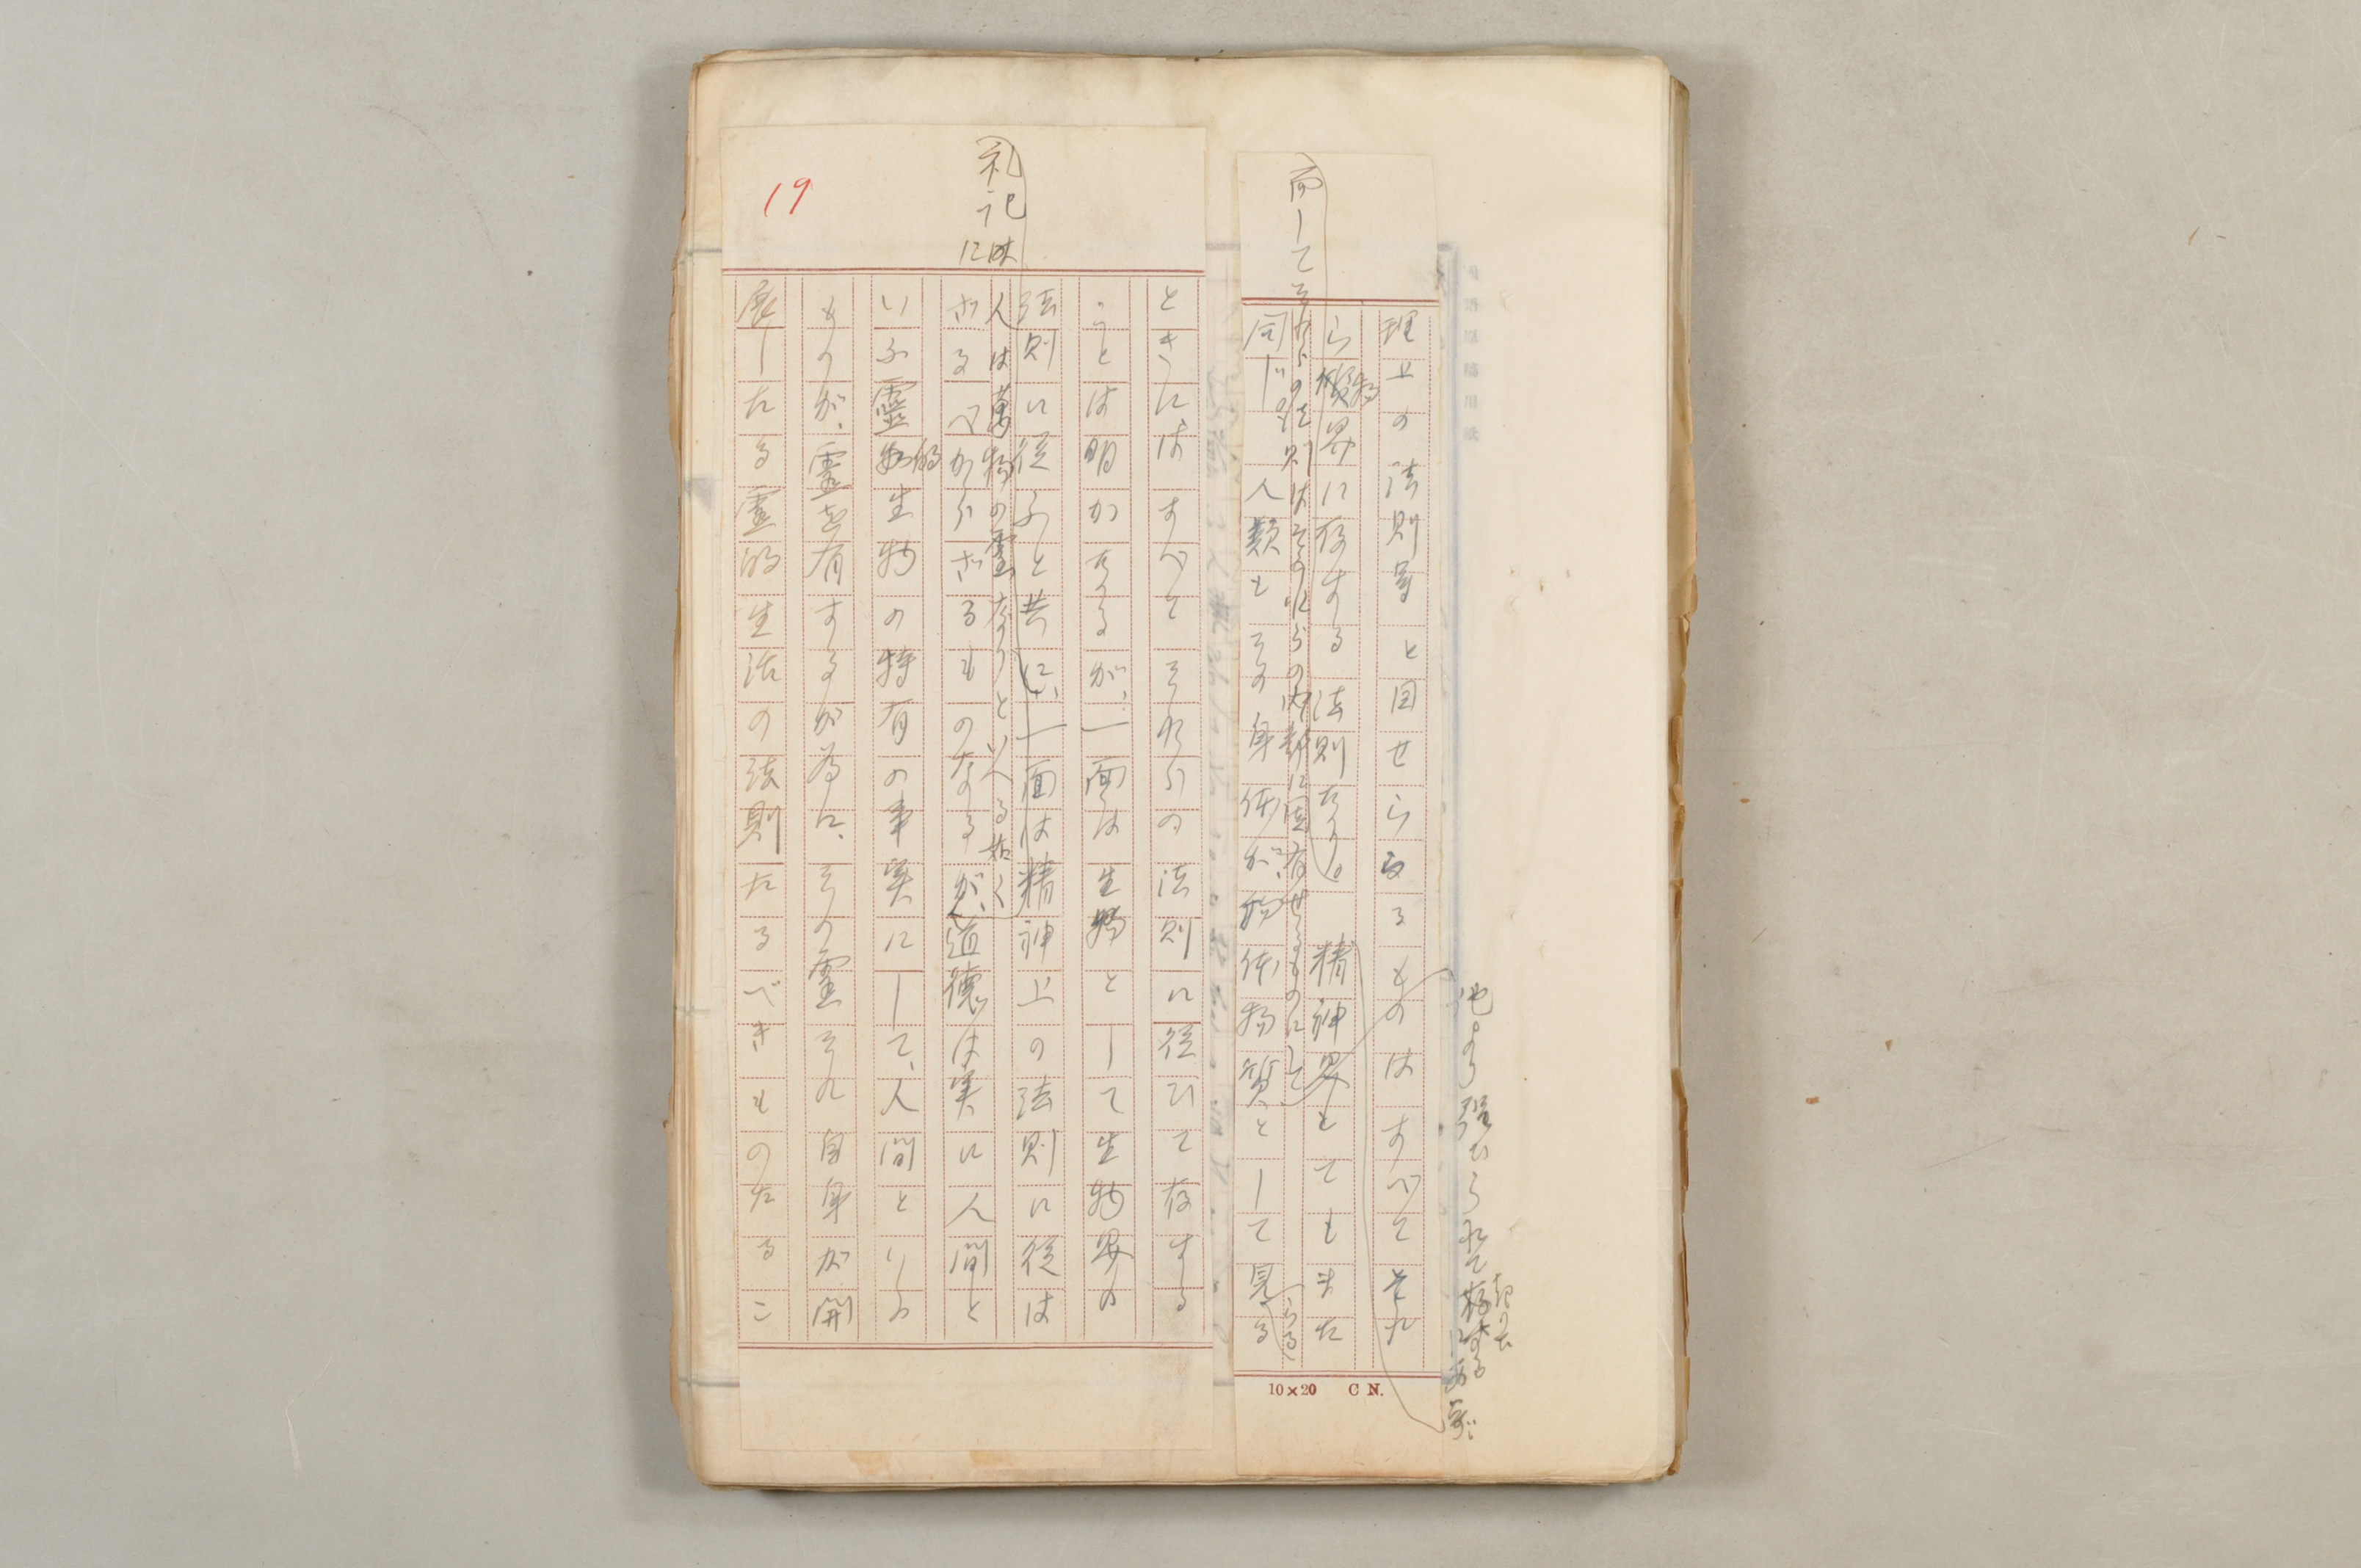 理上の法則等と目せらるるものはすべてそれ
ら物質界に存する法則なり。精神界とてもまた
而してそれらの法則はそのれらの内部に固有せるものにして
他より強ひられて
同じ。人類もその身体が、物体物質として見る
らる
10×20 C N.
ときにはすべてそれらの法則に従ひて存する
ことは明かなるが、一面は生物として生物界の
法則に従ふと共に、一面は精神上の法則に従は
礼記には
人は萬物の霊なりといへる如く
ざるべからざるものなるが、道徳は実に人間と
いふ靈的生物の特有の事実にして、人間といふ
ものが、霊を有するが為に、その霊それ自身が開
展したる霊的生活の法則たるべきものたるこ
19